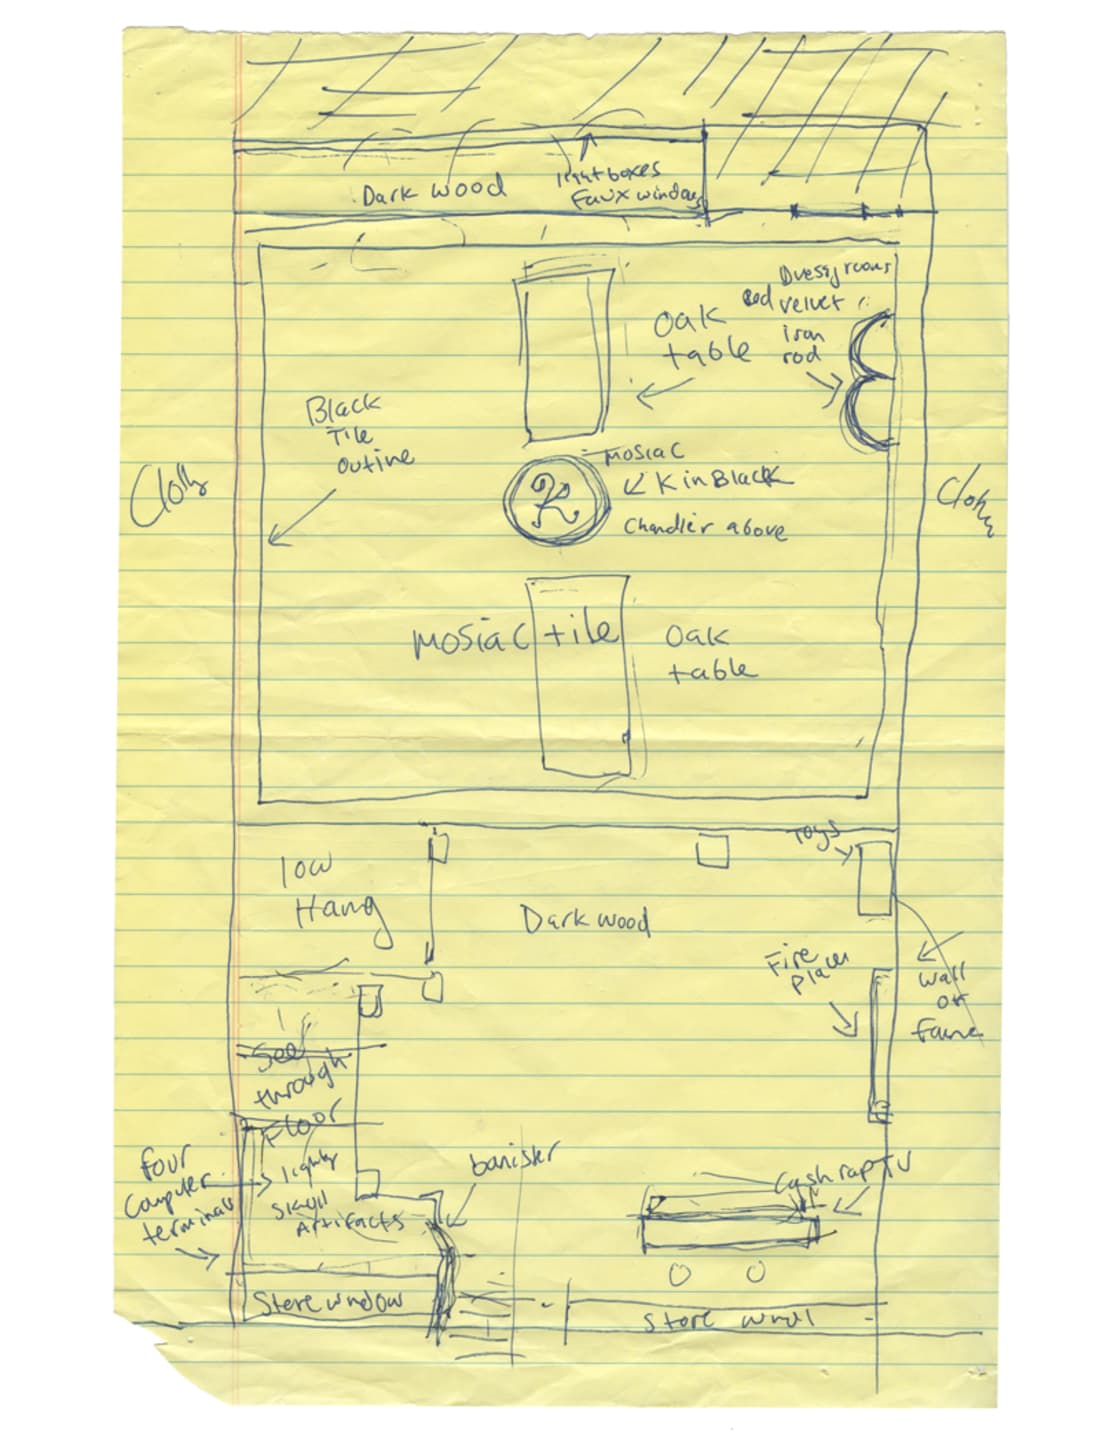 Dark wood
lightboxes
Faux windows
Dressg rooms
Red velvet
iron
rod
Oak
table
Black
Tile
outine
mosiac
K in Black
K
Chandlier above
mosiac tile
Oak
table
Toys
low
Hang
Dark wood
Fire
place
wall
of
fame
See
through
Floor
four
computer
terminals
lights
skull
Artifacts
banister
Cash rap TV
Store window
Store